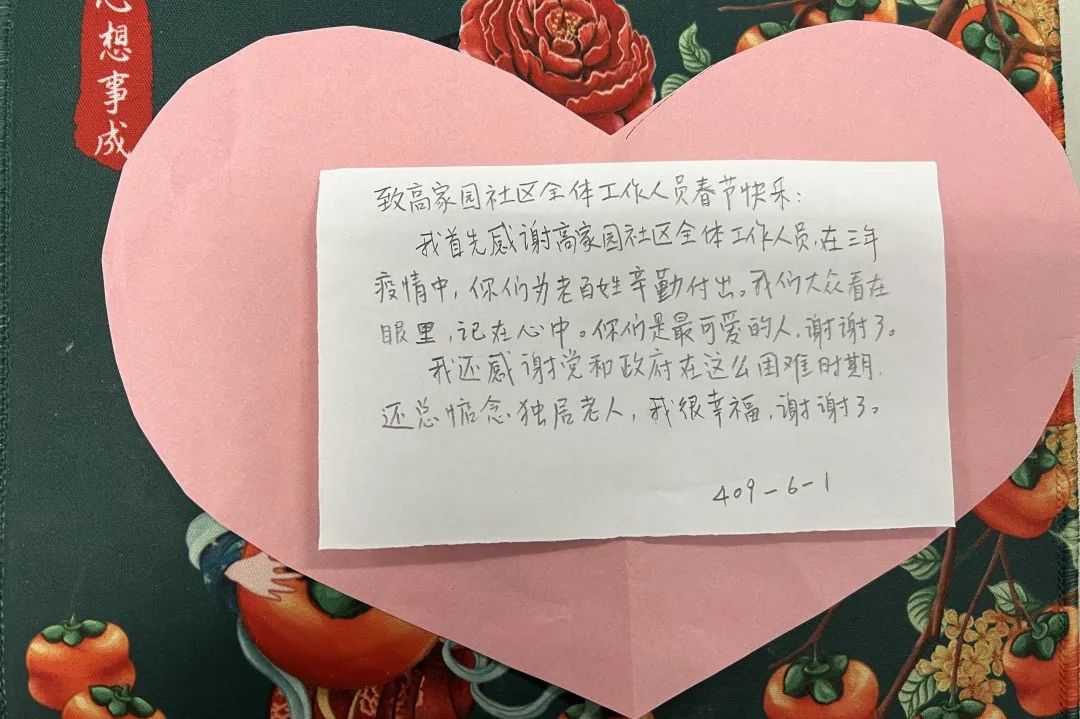 心想事成
致高家园社区全体工作人员春节快乐：
我首先感谢高家园社区全体工作人员，在三年
疫情中，你们为老百姓辛勤付出。我们大众看在
眼里，记在心中。你们是最可爱的人，谢谢了。
我还感谢党和政府在这么困难时期，
还总惦念独居老人，我很幸福，谢谢了。
409-6-1